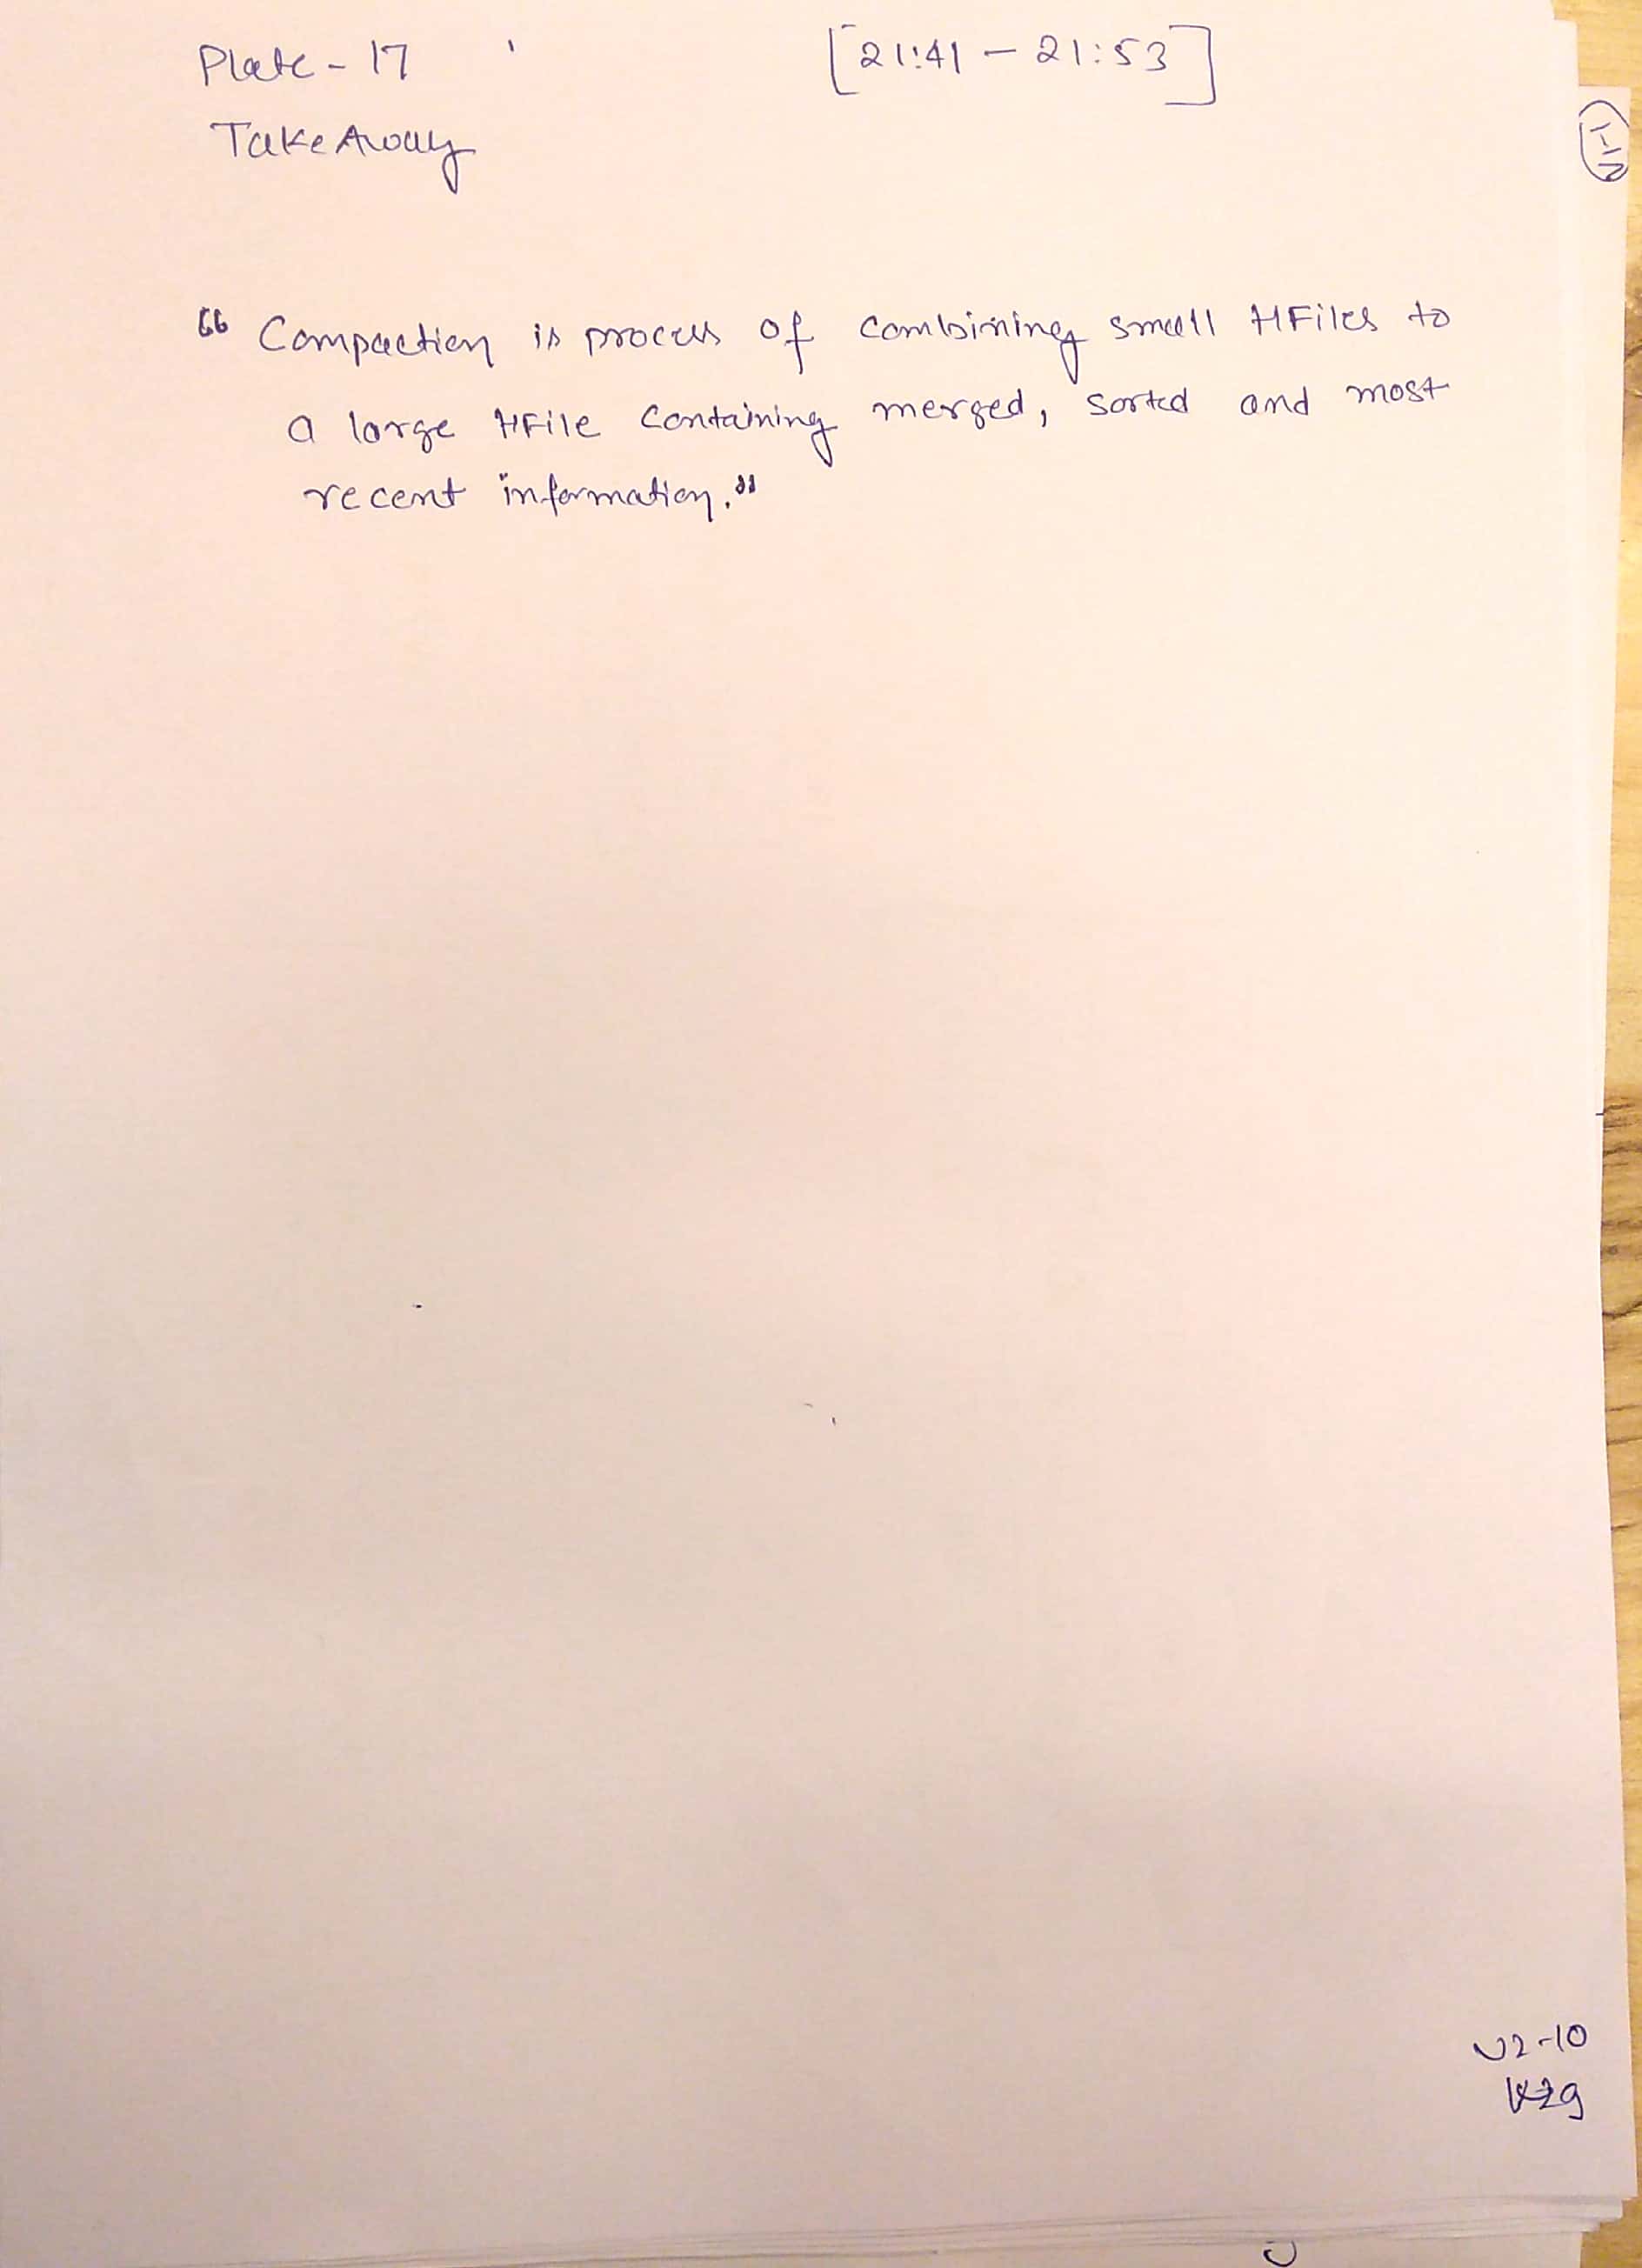 Plate - 17 [21:41 - 21:53]
TakeAway
"Compaction is process of combining small HFiles to
a large HFile containing merged, sorted and most
recent information."
V2-10